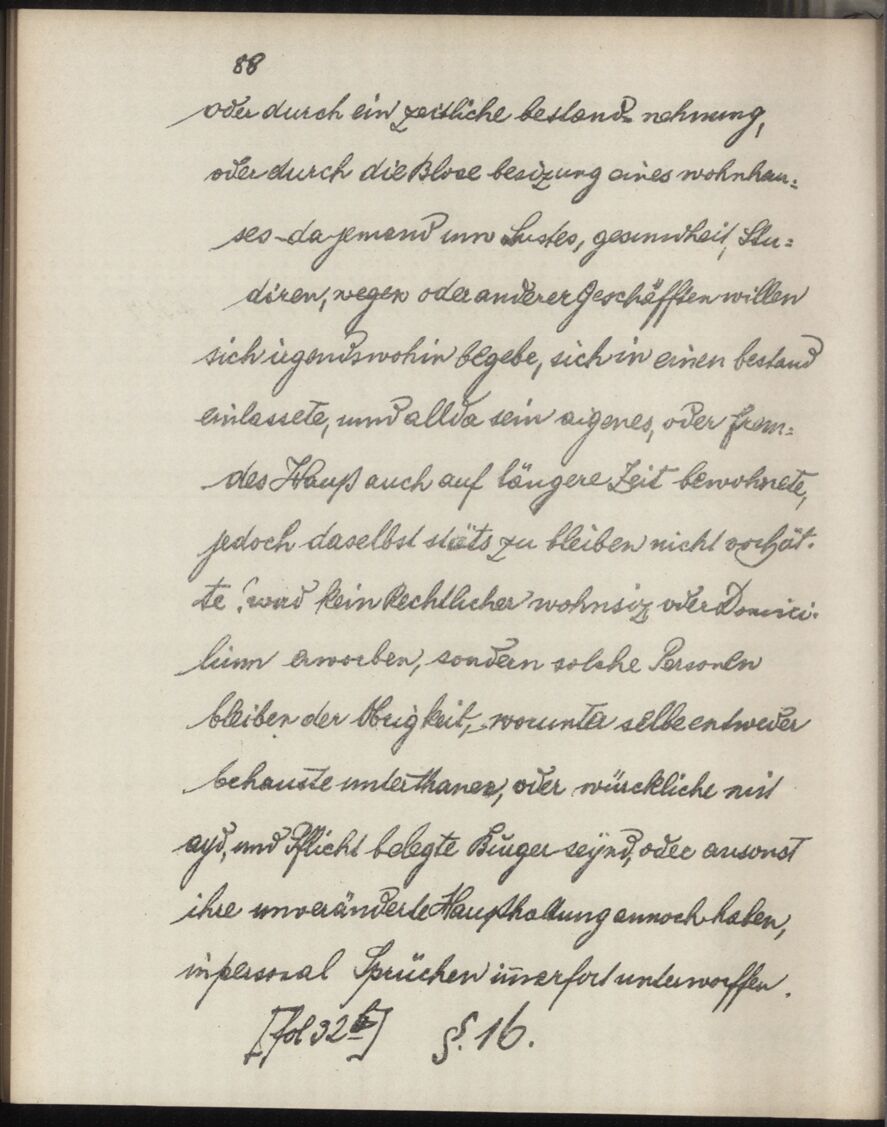 88
oder durch ein zeitliche bestand-nehmung,
oder durch die Blose besizung eines wohnhau=
ses - da jemand um Lustes, gesundheit, Stu=
diren, wegen oder anderer Geschäfften willen
sich irgendswohin begebe, sich in einen bestand
einlassete, unnd allda sein aigenes, oder frem=
des Hauß auch auf längere Zeit bewohnete,
jedoch daselbst stäts zu bleiben nicht vorhät=
te wird kein Rechtlicher wohnsiz oder Domici=
lium erworben, sondern solche Personen
bleiben der Obrigkeit, worunter selbe entweder
behauste unterthanen, oder würckliche mit
ayd, und Pflicht belegte Burger seynd, oder ansonst
ihre unveränderte Haußhaltung annoch haben,
in personal Sprüchen immerfort unterworffen.
[fol 32b] §. 16.